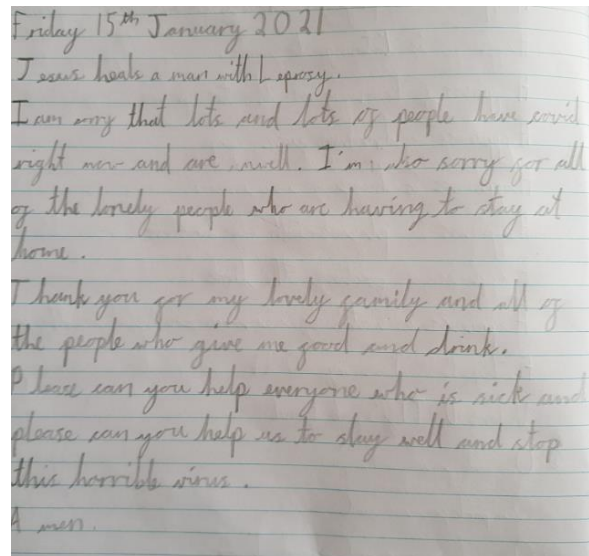 Friday 15th January 2021
Jesus heals a man with Leprosy.
I am sorry that lots and lots of people have covid
right now and are unwell. I'm also sorry for all
of the lonely people who are having to stay at
home.
Thank you for my lovely family and all of
the people who give me food and drink.
Please can you help everyone who is sick and
please can you help us to stay well and stop
this horrible virus.
Amen.